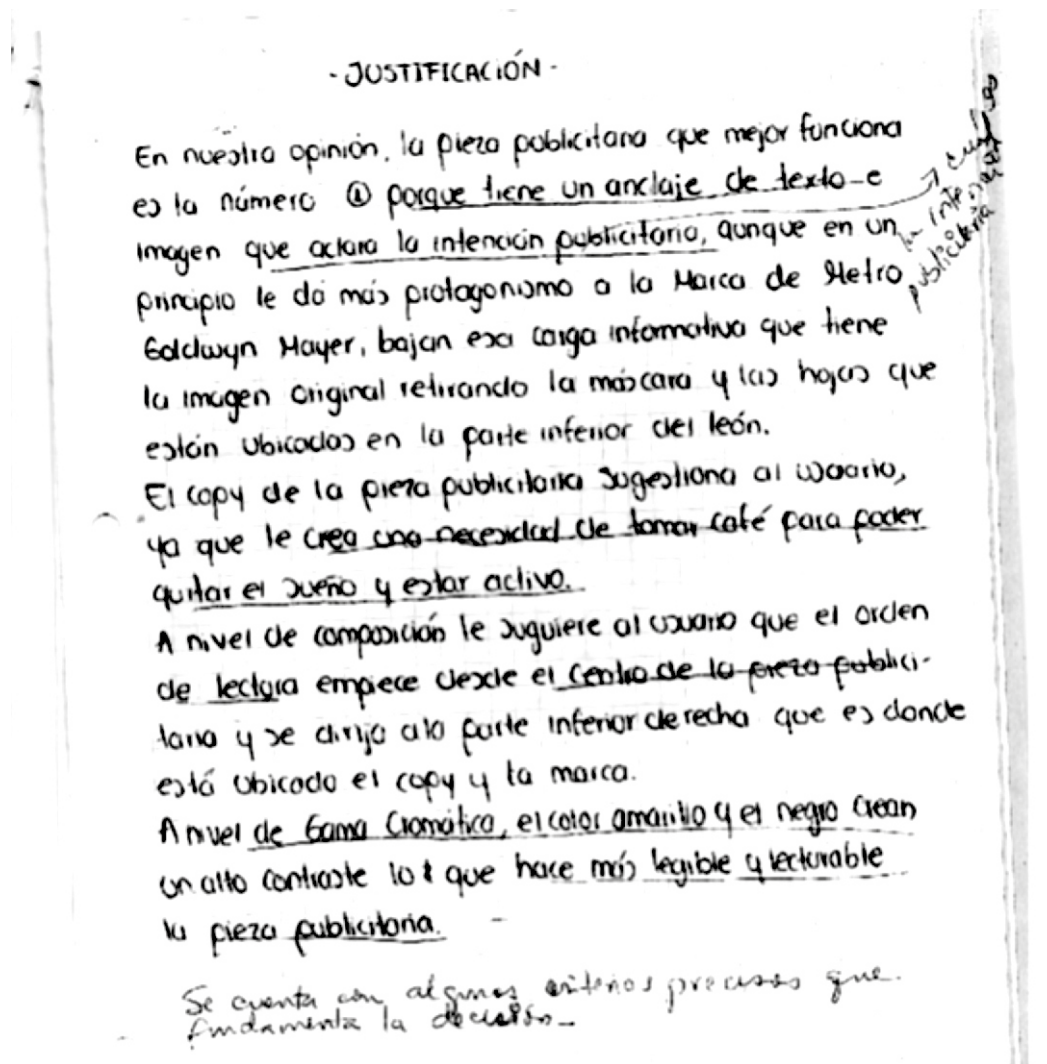 - JUSTIFICACIÓN -
En nuestra opinión, la pieza publicitaria que mejor funciona
es la número ① porque tiene un anclaje de texto e
imagen que aclara la intención publicitaria, aunque en un
principio le da más protagonismo a la Marca de Metro
Goldwyn Mayer, bajan esa carga informativa que tiene
la imagen original retirando la máscara y las hojas que
están ubicadas en la parte inferior del león.
El copy de la pieza publicitaria sugestiona al usuario,
ya que le crea una necesidad de tomar café para poder
quitar el sueño y estar activo.
A nivel de composición le suguiere al usuario que el orden
de lectura empiece desde el centro de la pieza publici-
taria y se dirija a la parte inferior derecha que es donde
está ubicado el copy y la marca.
A nivel de Gama Cromática, el color amarillo y el negro crean
un alto contraste lo que hace más legible y lecturable
la pieza publicitaria.
→ cuál es
la intención
publicitaria
Se cuenta con algunos criterios precisos que
fundamenta la decisión